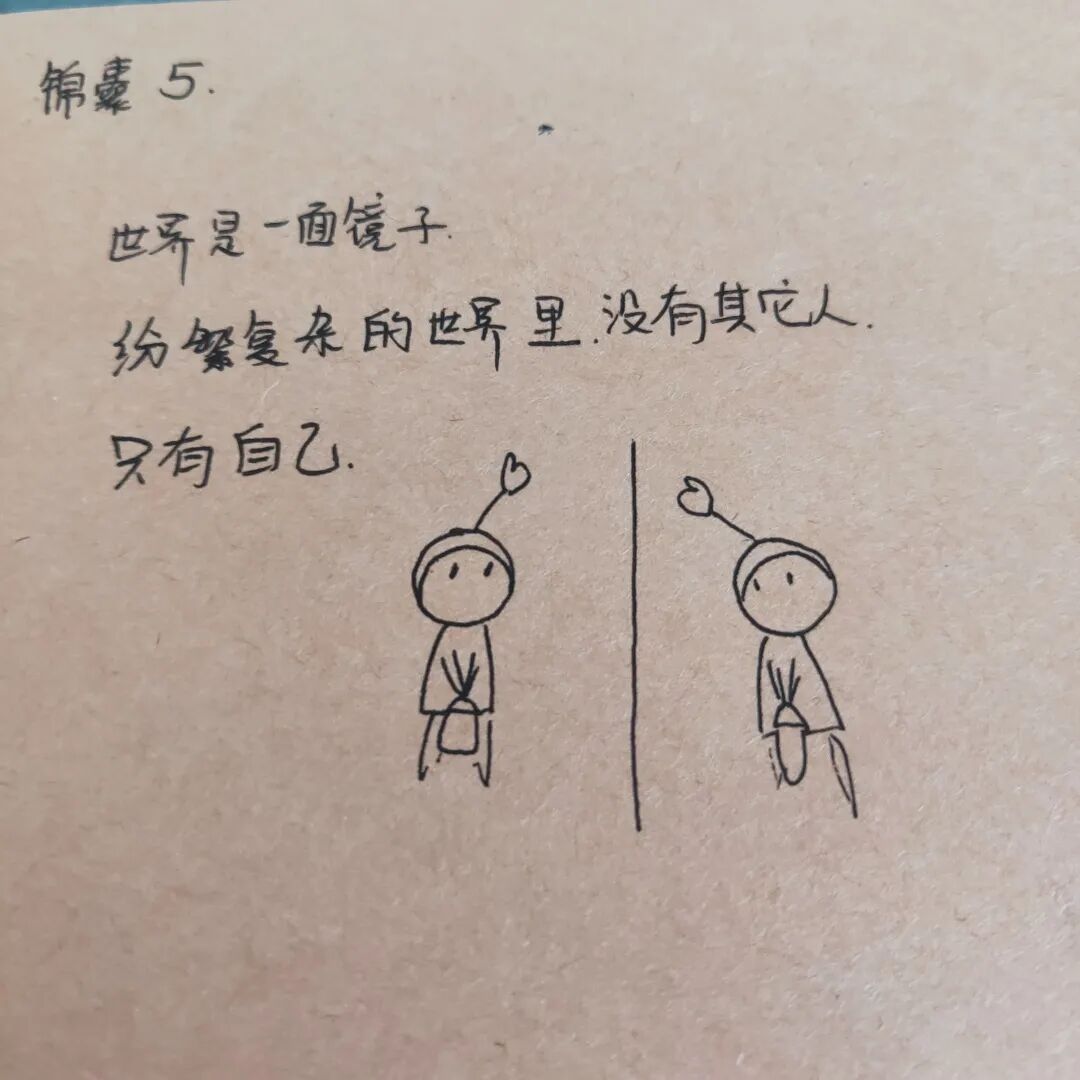 锦囊 5.
世界是一面镜子.
纷繁复杂的世界里.没有其它人.
只有自己.